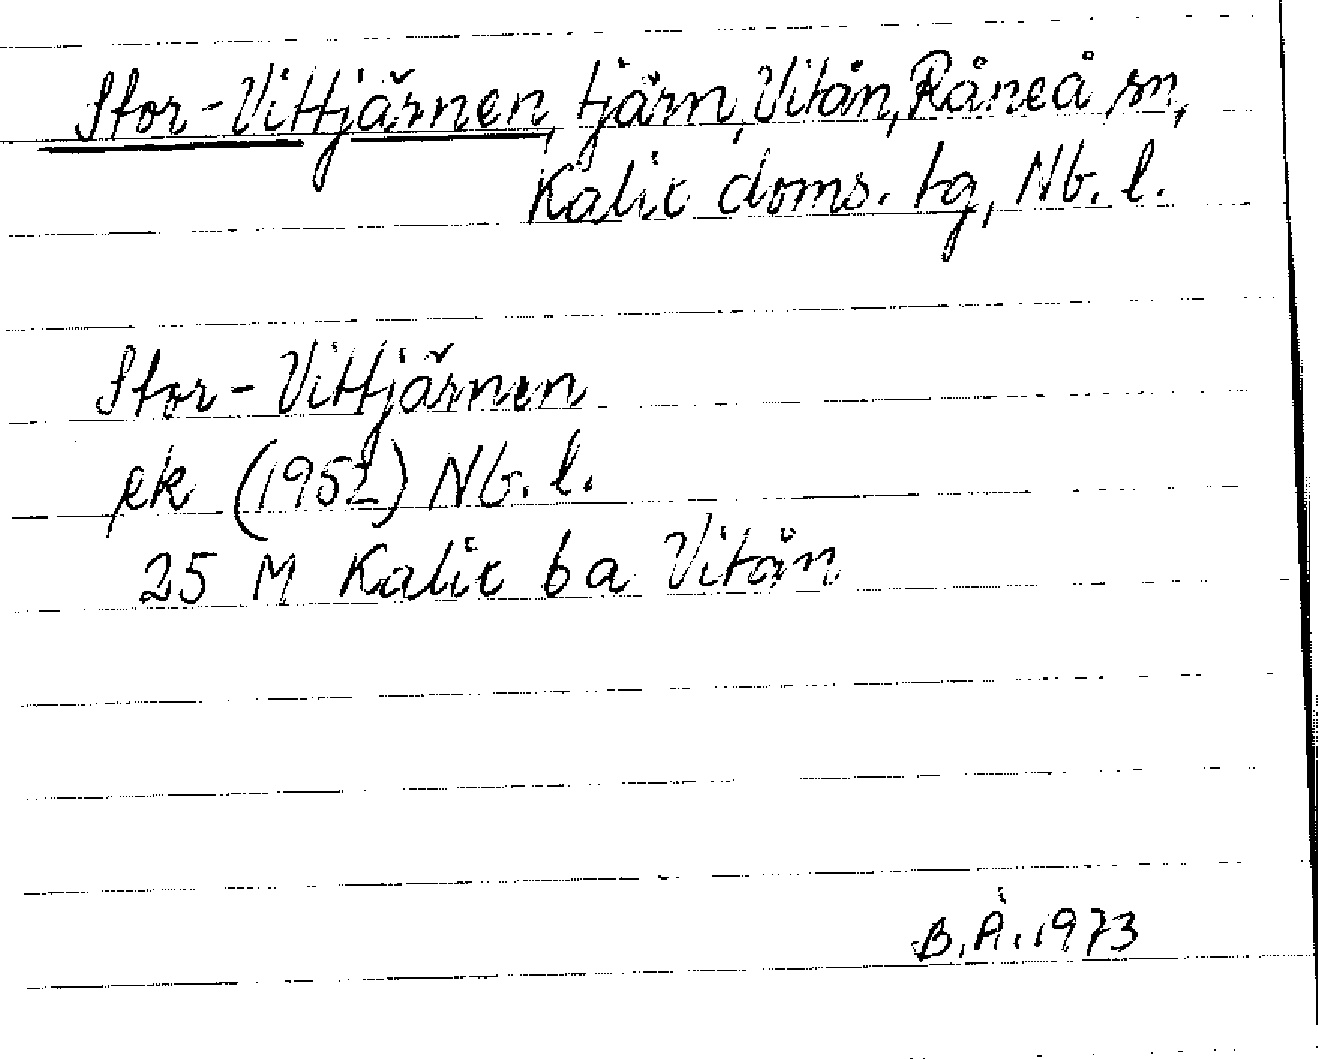 Stor-Vittjärnen, tjärn, Vitån, Råneå sn,
Kalix doms. tg, Nb. l.
Stor-Vittjärnen
ek (1952) Nb. l.
25 M Kalix ba Vitån
B.Å. 1973